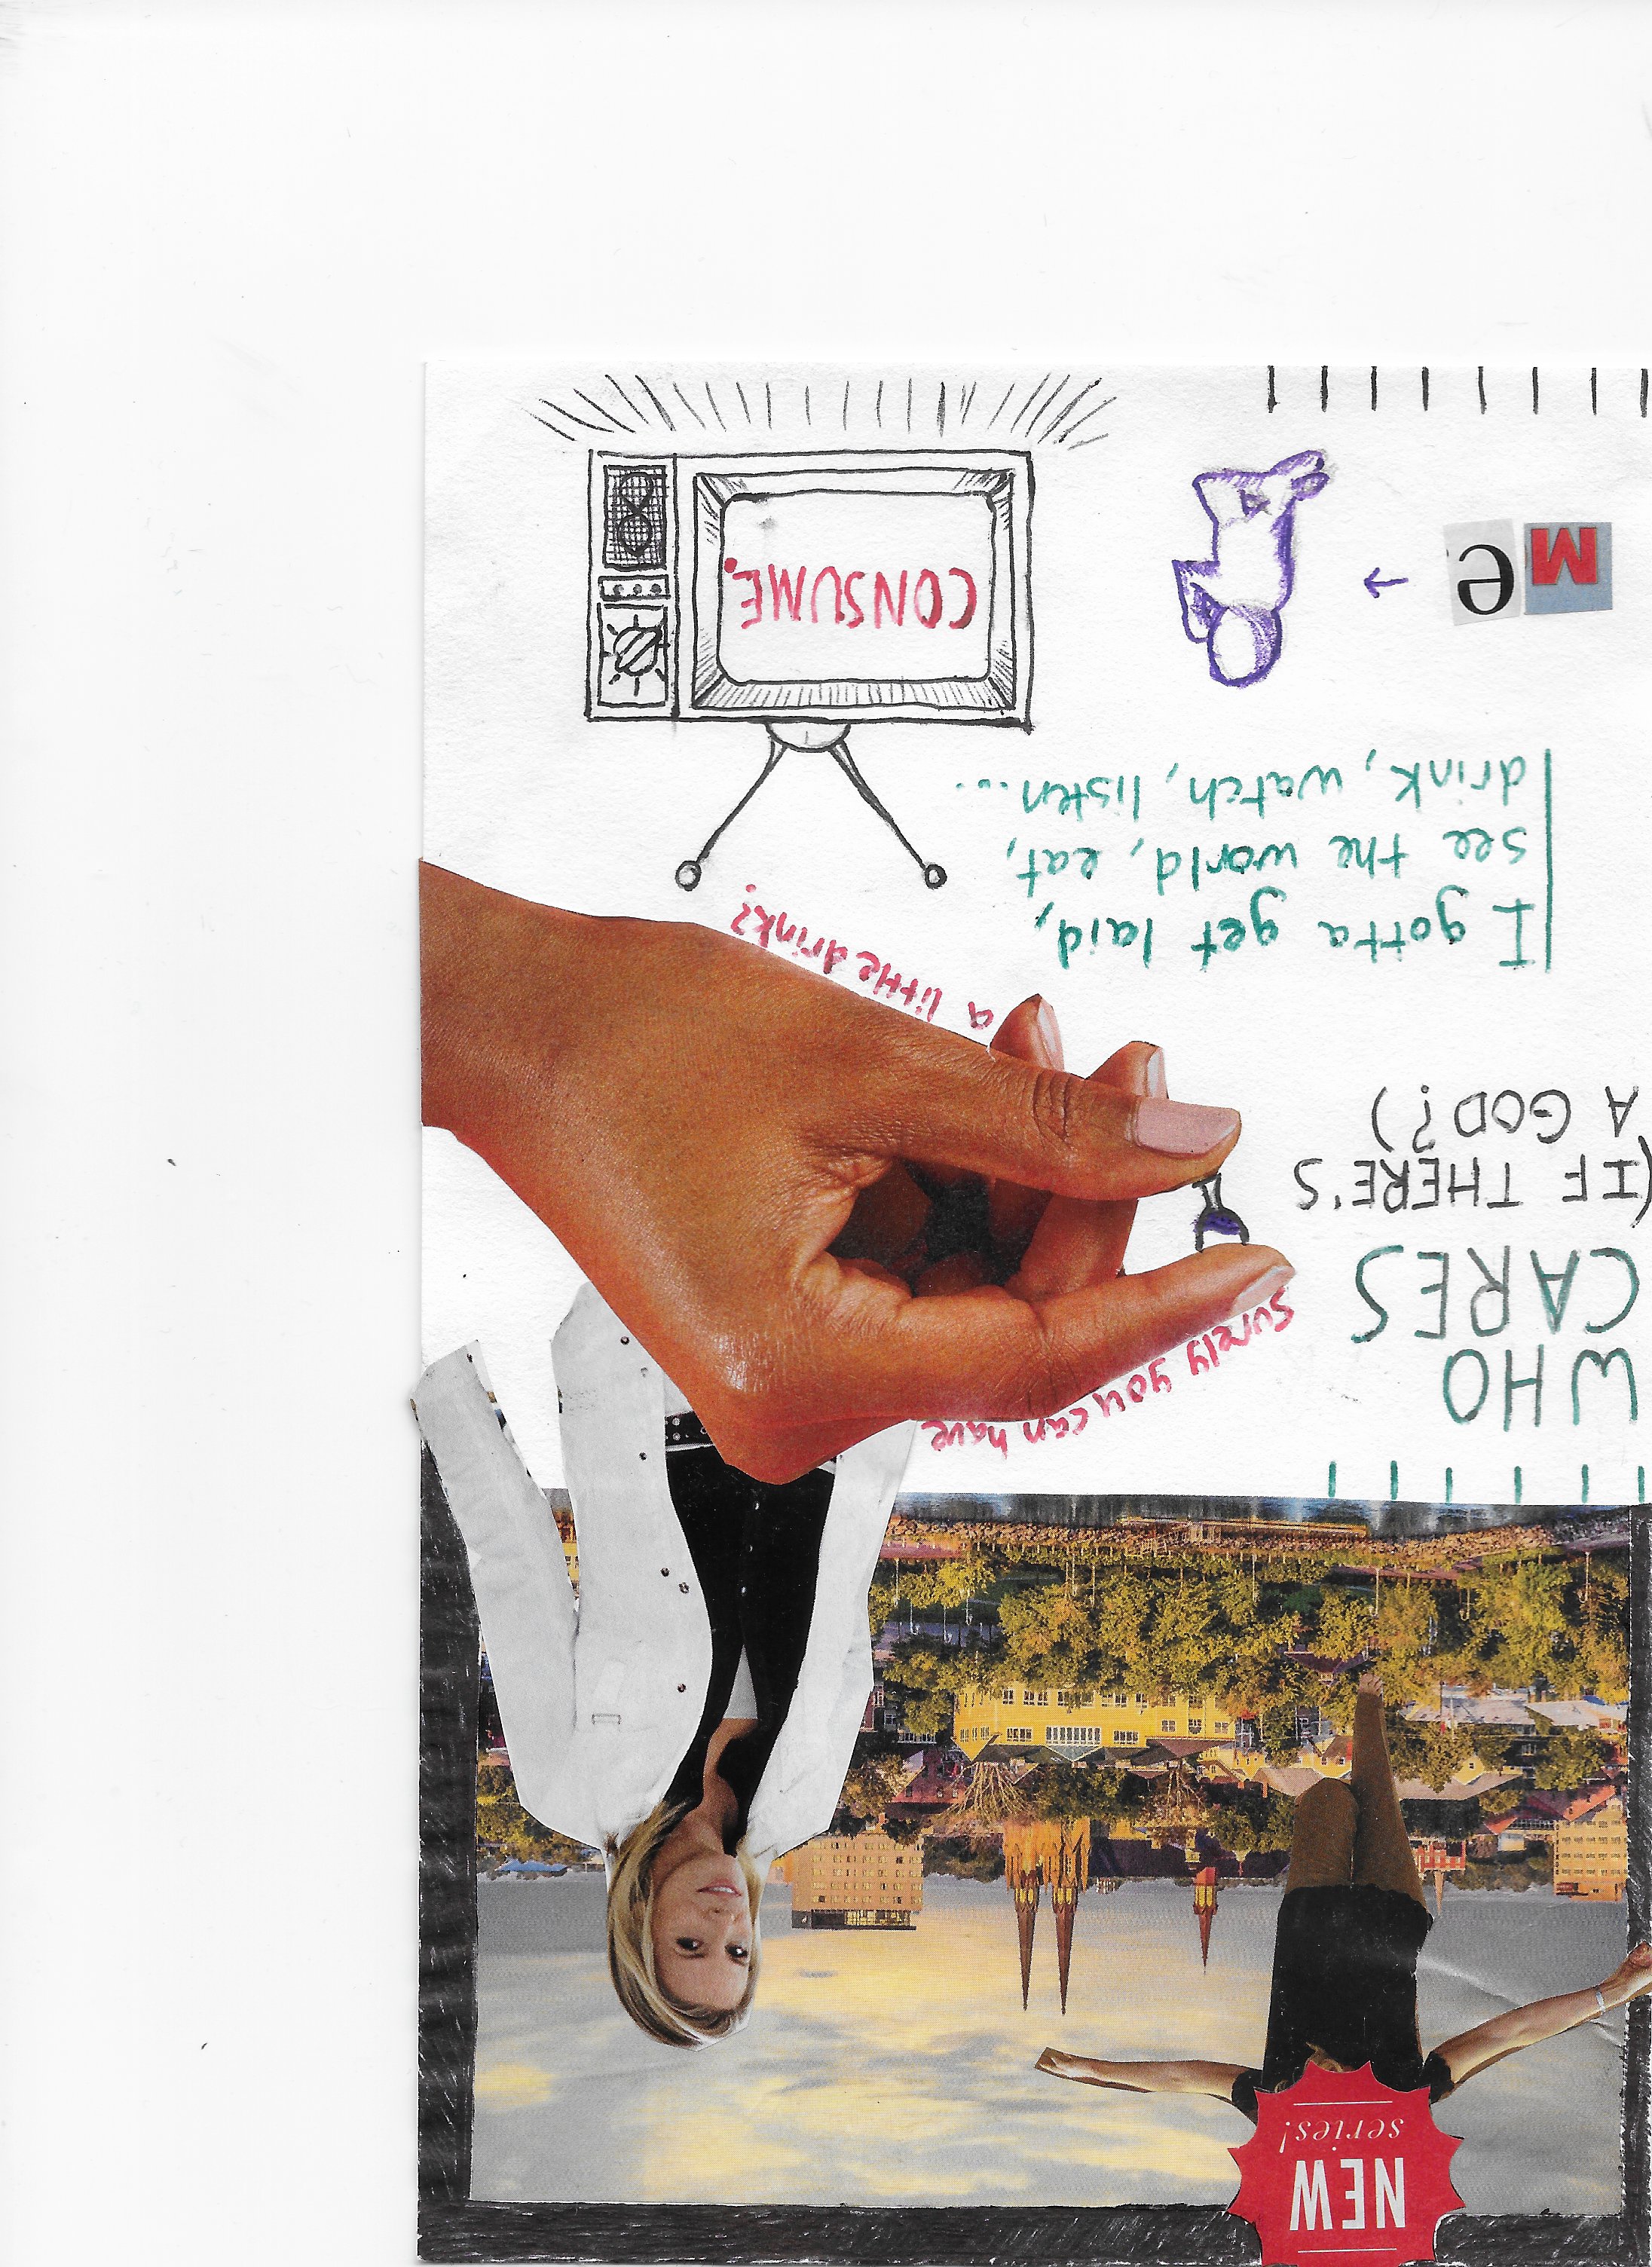 NEW
series!
WHO
CARES
(IF THERE'S
A GOD?)
Surely you can have
a little drink?
I gotta get laid,
see the world, eat,
drink, watch, listen...
Me
CONSUME.